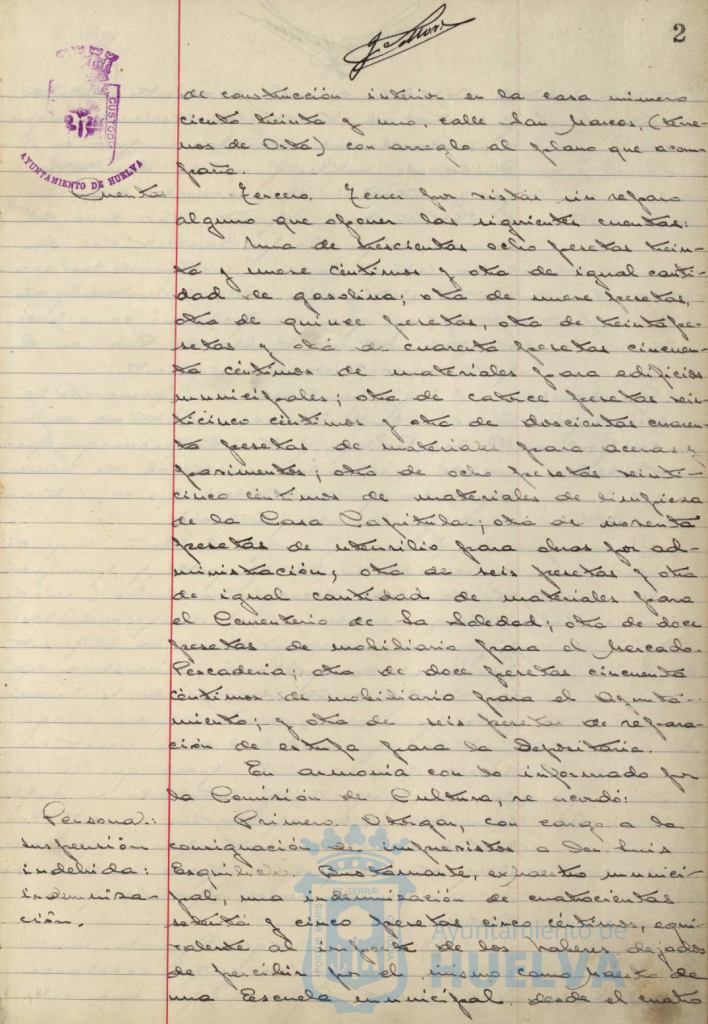 2
CUSTODIA
AYUNTAMIENTO DE HUELVA
de construcción interior en la casa número
ciento treinta y uno, calle San Marcos, (terre-
nos de Orta) con arreglo al plano que acom
paña.
Cuentas
Tercero. Tener por vistas sin reparo
alguno que oponer las siguientes cuentas:
Una de trescientas ocho pesetas trein-
ta y nueve céntimos y otra de igual canti-
dad de gasolina; otra de nueve pesetas,
otra de quince pesetas, otra de treinta pe-
setas y otra de cuarenta pesetas cincuen-
ta céntimos de materiales para edificios
municipales; otra de catorce pesetas vein-
ticinco céntimos y otra de doscientas cuaren-
ta pesetas de materiales para aceras y
pavimentos; otra de ocho pesetas veinti-
cinco céntimos de materiales de limpieza
de la Casa Capitular; otra de noventa
pesetas de utensilio para obras por ad-
ministración; otra de seis pesetas y otra
de igual cantidad de materiales para
el Cementerio de La Soledad; otra de doce
pesetas de mobiliario para el Mercado-
Pescadería; otra de doce pesetas cincuenta
céntimos de mobiliario para el Ayunta-
miento; y otra de seis pesetas de repara-
ción de estufa para la Depositaría.
En armonía con lo informado por
la Comisión de Cultura, se acordó:
Personal:
suspensión
indebida:
indemniza-
ción.
Primero. Otorgar, con cargo a la
consignación de imprevistos a Don Luis
Bustamante, ex-maestro munici-
pal, una indemnización de cuatrocientas
setenta y cinco pesetas cinco céntimos, equi-
valente al importe de los haberes dejados
de percibir por el mismo como maestro de
una Escuela municipal, desde el cuatro
Ayuntamiento de
HUELVA